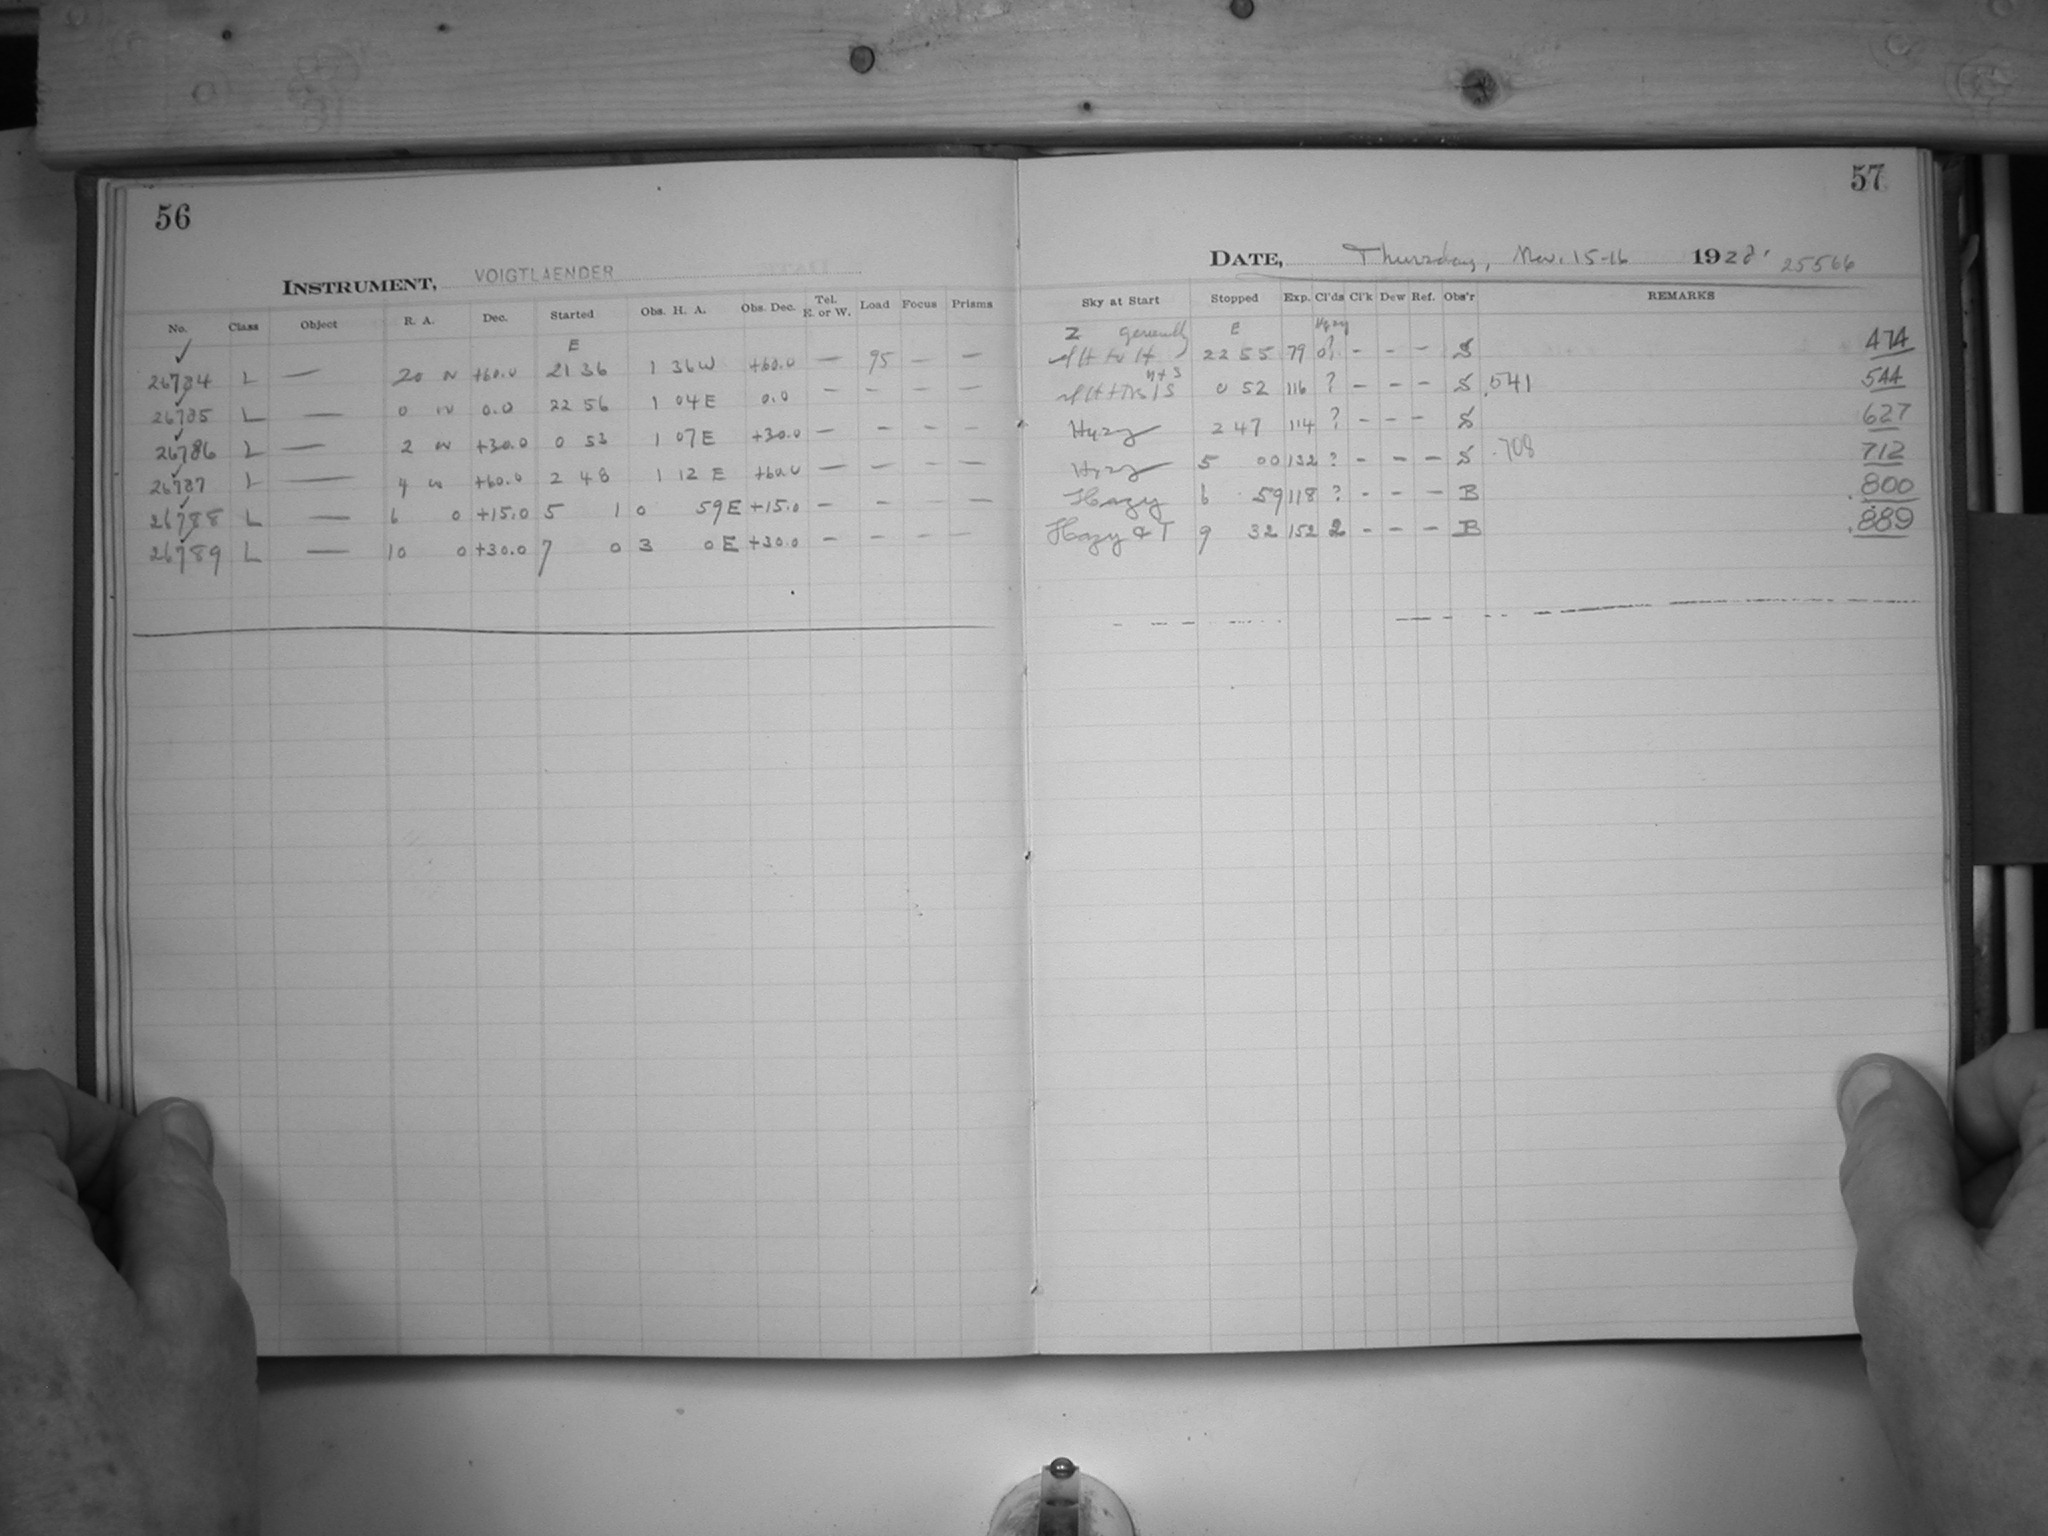 56
INSTRUMENT, VOIGTLAENDER
No. Class Object R. A. Dec. Started Obs. H. A. Obs. Dec. Tel. E. or W. Load Focus Prisms
E
26784 L — 20 N +60.0 21 36 1 36W +60.0 — 95 — —
26785 L — 0 N 0.0 22 56 1 04E 0.0 — — — —
26786 L — 2 N +30.0 0 53 1 07E +30.0 — — — —
26787 L — 4 N +60.0 2 48 1 12 E +60.0 — — — —
26788 L — 6 0 +15.0 5 1 0 59E +15.0 — — — —
26789 L — 10 0 +30.0 7 0 3 0E +30.0 — — — —
57
DATE, Thursday, Nov. 15-16 1928. 25566
Sky at Start Stopped Exp. Cl'ds Cl'k Dew Ref. Obs'r REMARKS
Z generally E Hyzy
22 55 79 0? - - - S 474
N+S
0 52 116 ? - - - S .541 544
Hyzy 2 47 114 ? - - - S 627
Hyzy 5 00 132 ? - - - S .708 712
Hazy 6 59 118 ? - - - B .800
Hazy & T 9 32 152 2 - - - B .889